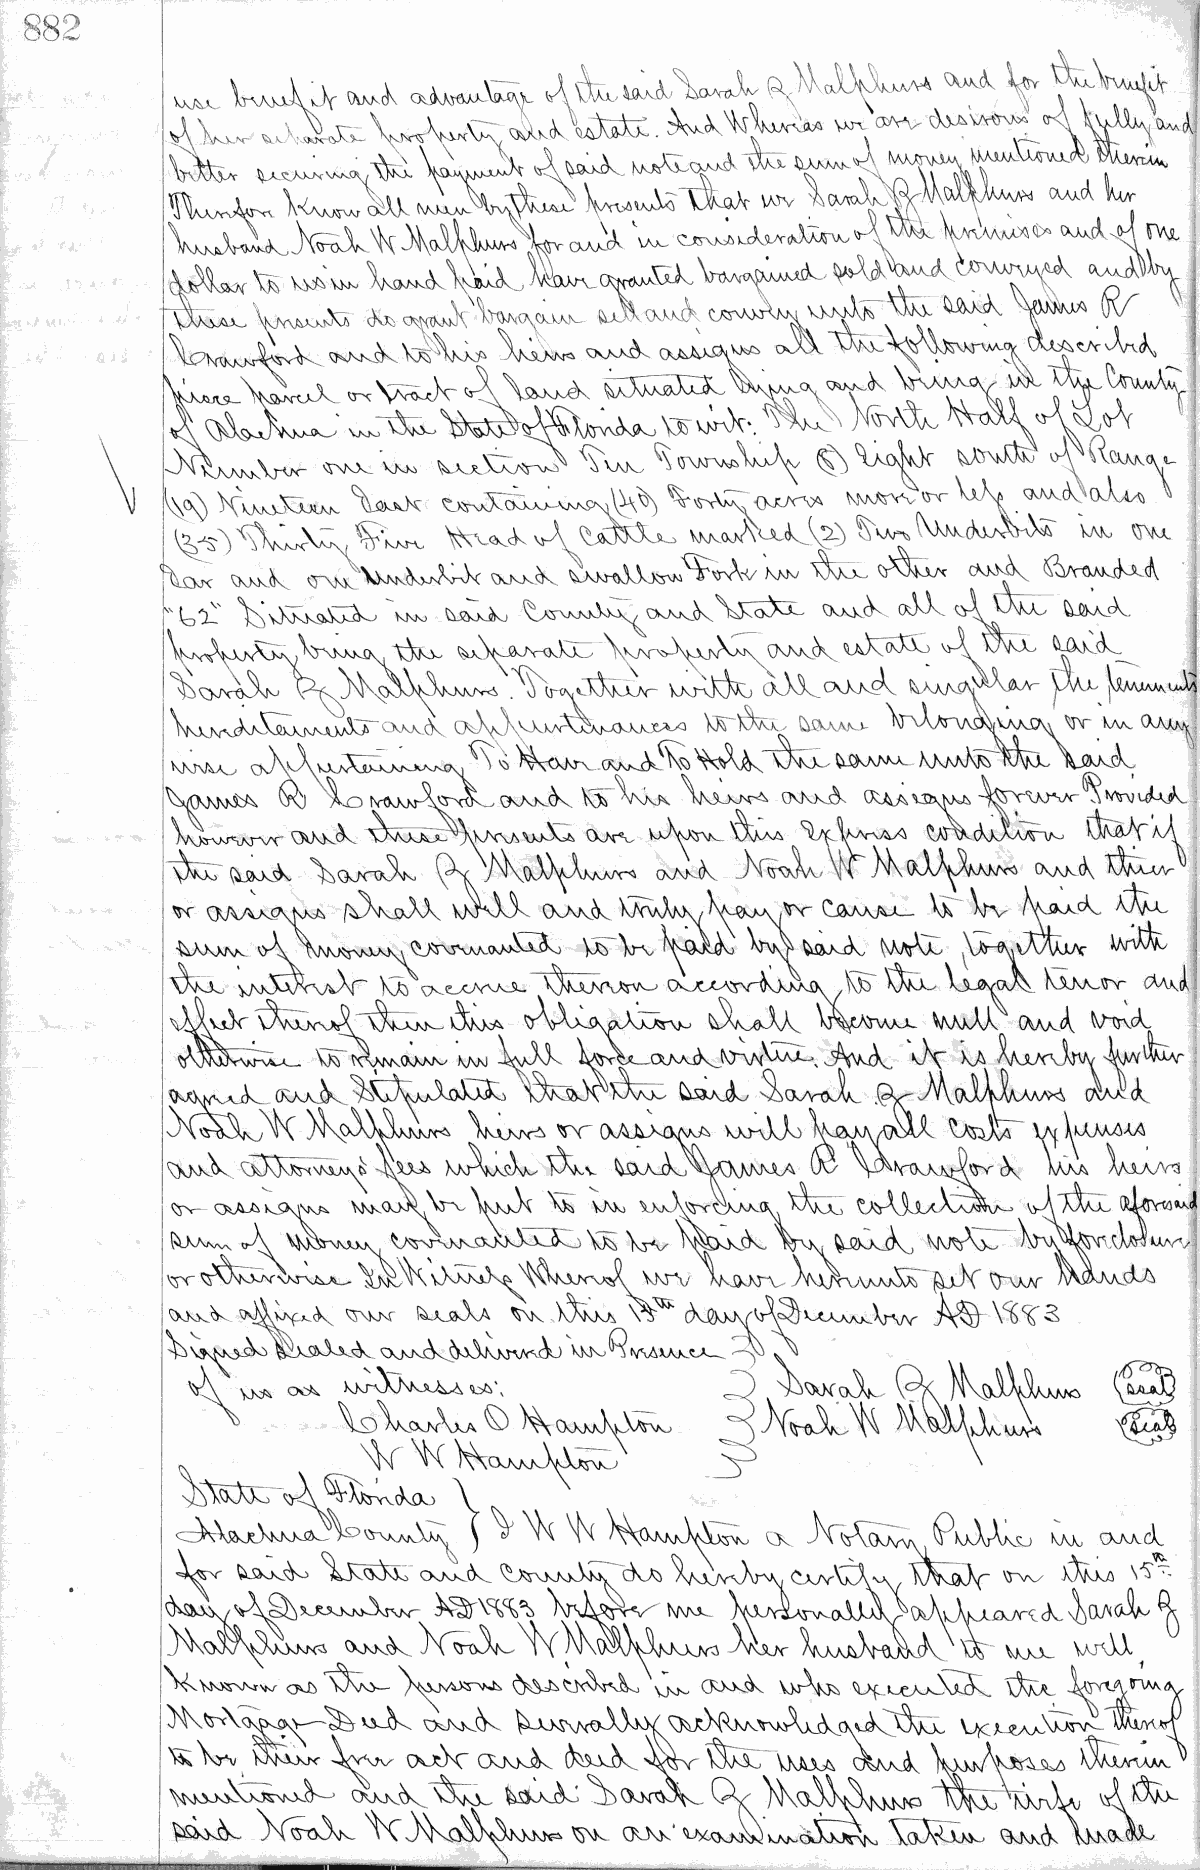 882
use benefit and advantage of the said Sarah Z Malphurs and for the benefit
of her separate property and estate. And Whereas we are desirous of fully and
better securing the payment of said note and the sum of money mentioned therein
Therefore know all men by these presents that we Sarah Z Malphurs and her
husband Noah W Malphurs for and in consideration of the premises and of one
dollar to us in hand paid have granted bargained sold and conveyed and by
these presents do grant bargain sell and convey unto the said James R
Crawford and to his heirs and assigns all the following described
piece parcel or tract of land situated lying and being in the County
of Alachua in the State of Florida to wit: The North Half of Lot
Number one in section Ten Township (8) Eight south of Range
(19) Nineteen East containing (40) Forty acres more or less and also
(35) Thirty Five Head of Cattle marked (2) Two Underbits in one
Ear and one Underbit and swallow Fork in the other and Branded
"62" Situated in said County and State and all of the said
property being the separate property and estate of the said
Sarah Z Malphurs. Together with all and singular the tenements
hereditaments and appurtinances to the same belonging or in any
wise appertaining To Have and To Hold the same unto the said
James R Crawford and to his heirs and assigns forever Provided
however and these presents are upon this Express condition that if
the said Sarah Z Malphurs and Noah W Malphurs and thier
or assigns shall well and truly pay or cause to be paid the
sum of money covenanted to be paid by said note, together with
the interest to accrue thereon according to the legal tenor and
effect thereof then this obligation shall become null and void
otherwise to remain in full force and virtue. And it is hereby further
agreed and Stipulated that the said Sarah Z Malphurs and
Noah W Malphurs heirs or assigns will pay all costs expenses
and attorneys' fees which the said James R Crawford his heirs
or assigns may be put to in enforcing the collection of the aforesaid
sum of money covenanted to be paid by said note by foreclosure
or otherwise In Witness Whereof we have hereunto set our hands
and affixed our seals on this 15th day of December AD 1883
Signed Sealed and delivered in Presence
of us as witnesses: Sarah Z Malphurs (seal)
Charles O Hampton Noah W Malphurs (seal)
W W Hampton
State of Florida
Alachua County } I W W Hampton a Notary Public in and
for said State and County do hereby certify that on this 15th
day of December AD 1883 before me personally appeared Sarah Z
Malphurs and Noah W Malphurs her husband to me well
known as the persons described in and who executed the foregoing
Mortgage Deed and severally acknowledged the execution thereof
to be their free act and deed for the uses and purposes therein
mentioned and the said Sarah Z Malphurs the wife of the
said Noah W Malphurs on an examination taken and made